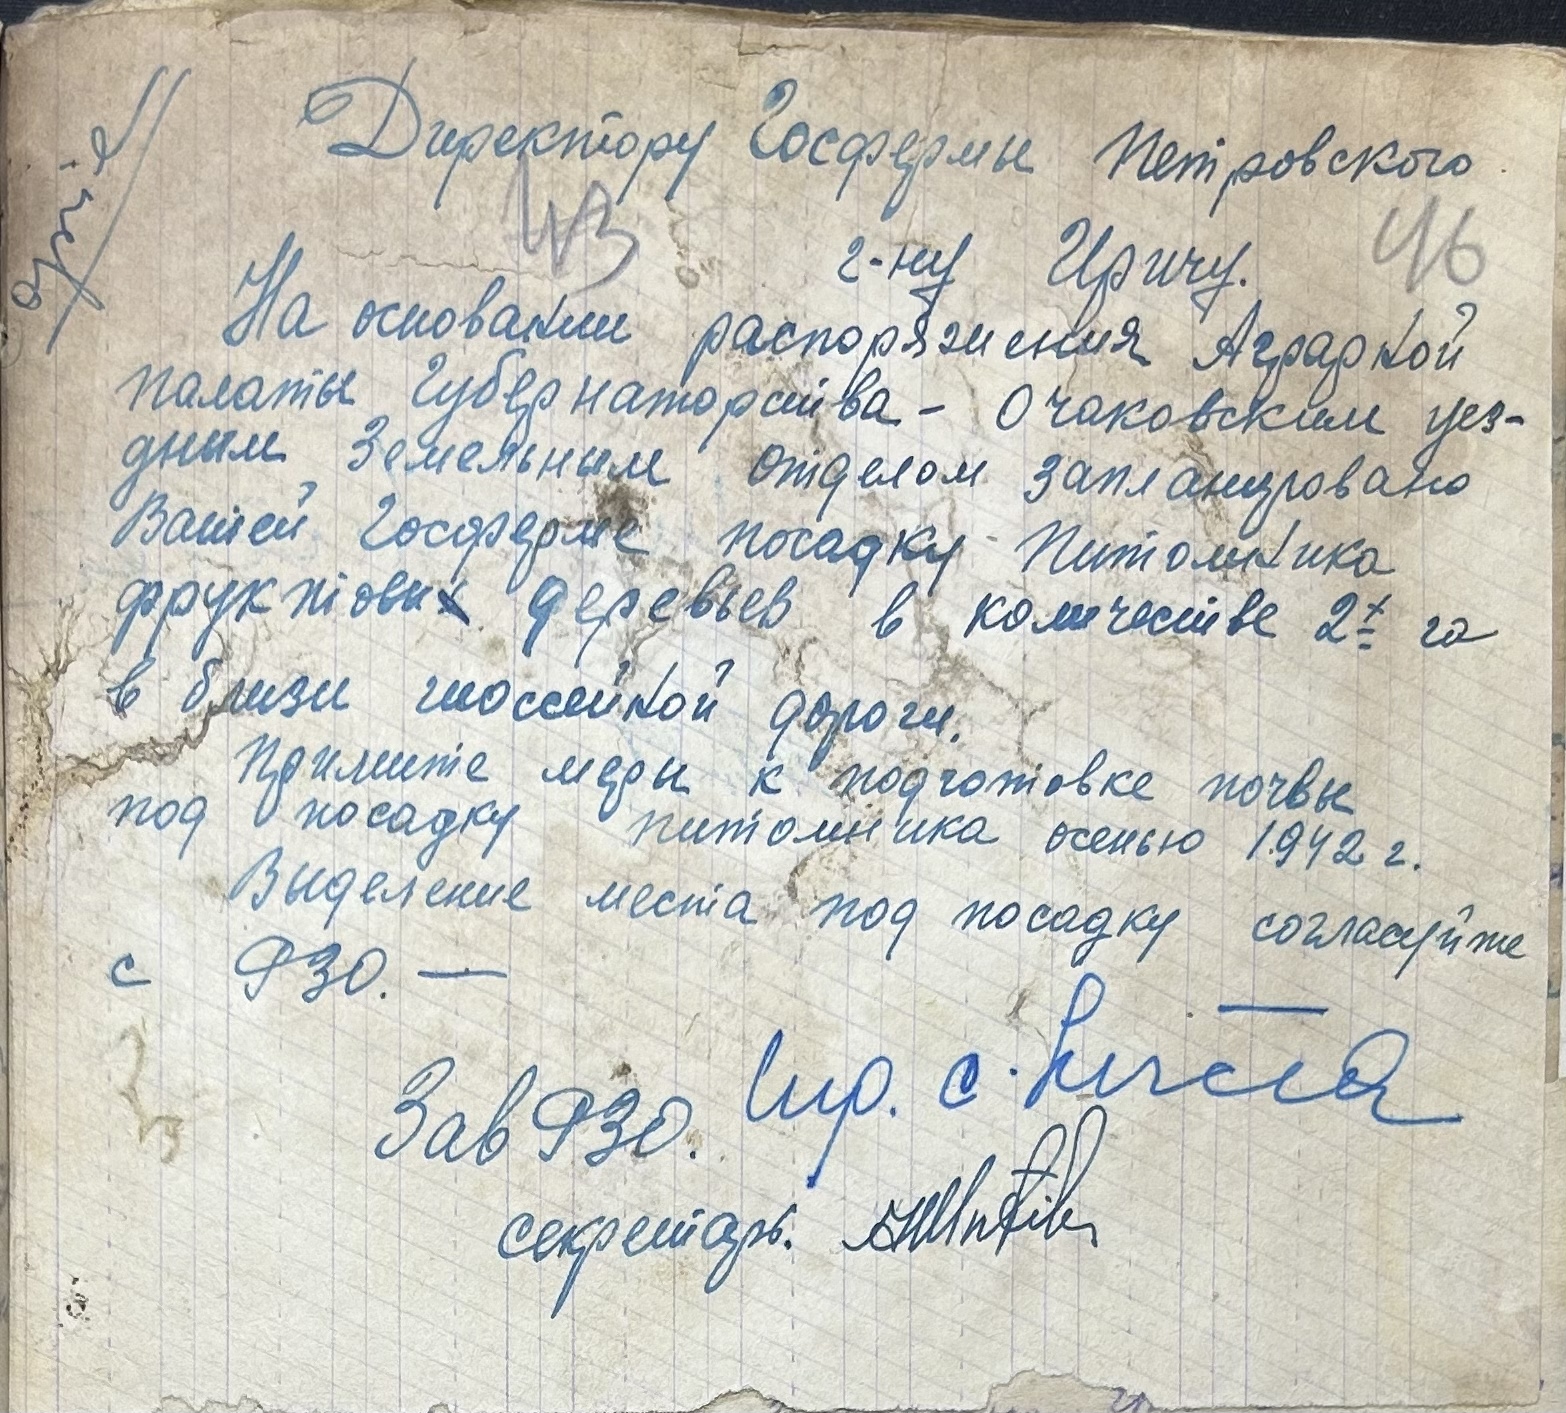 Директору Госфермы Петровского
43
46
г-ну Иричу.
На основании распоряжения Аграрной
палаты Губернаторства - Очаковским уез-
дным Земельным отделом запланировано
Вашей Госферме посадку Питомника
фруктових деревьев в количестве 2х га
в близи шоссейной дороги.
Примите меры к подготовке почвы
под посадку питомника осенью 1942 г.
Выделение места под посадку согласуйте
с РЗО. —
Зав РЗО.
секретарь.